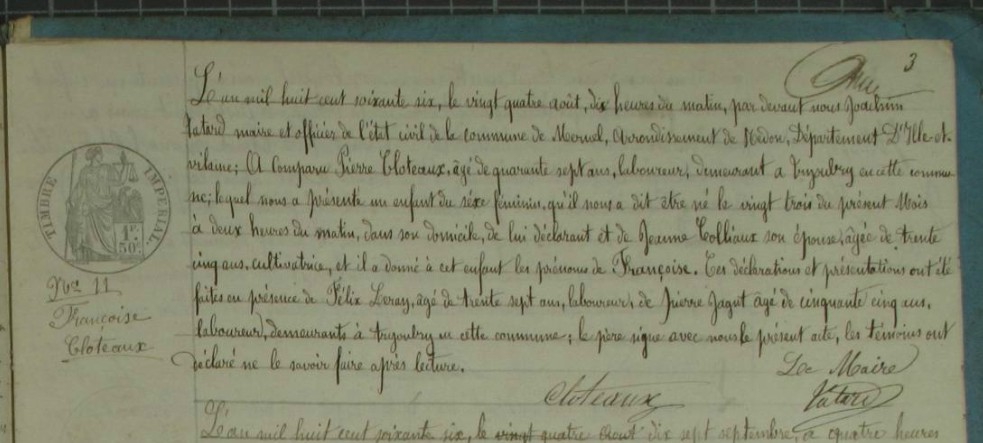 3
L'an mil huit cent soixante six, le vingt quatre août, dix heures du matin, par devant nous Joachim
Tatard maire et officier de l'état civil de la commune de Mernel, Arrondissement de Redon, Département D'Ille-et-
vilaine; A Comparu Pierre Cloteaux, âgé de quarante sept ans, laboureur, demeurant a en cette commu-
ne; lequel nous a présenté un enfant du séxe féminin, qu'il nous a dit etre né le vingt trois du présent Mois
à deux heures du matin, dans son domicile, de lui déclarant et de Jeanne Colliaux son épouse, agée de trente
cinq ans, cultivatrice, et il a donné à cet enfant les prénoms de Françoise. Ces déclarations et présentations ont été
faites en présence de Félix Leray, agé de trente sept ans, laboureur, de Pierre Jagut agé de cinquante cinq ans,
laboureur, demeurants à en cette commune; le père signe avec nous le présent acte, les témoins ont
déclaré ne le savoir faire après lecture.
Le Maire
Cloteaux
Tatard
TIMBRE IMPERIAL
1F.
50C.
N° 11
Françoise
Cloteaux
L'an mil huit cent soixante six, le vingt quatre dix sept septembre, a quatre heures